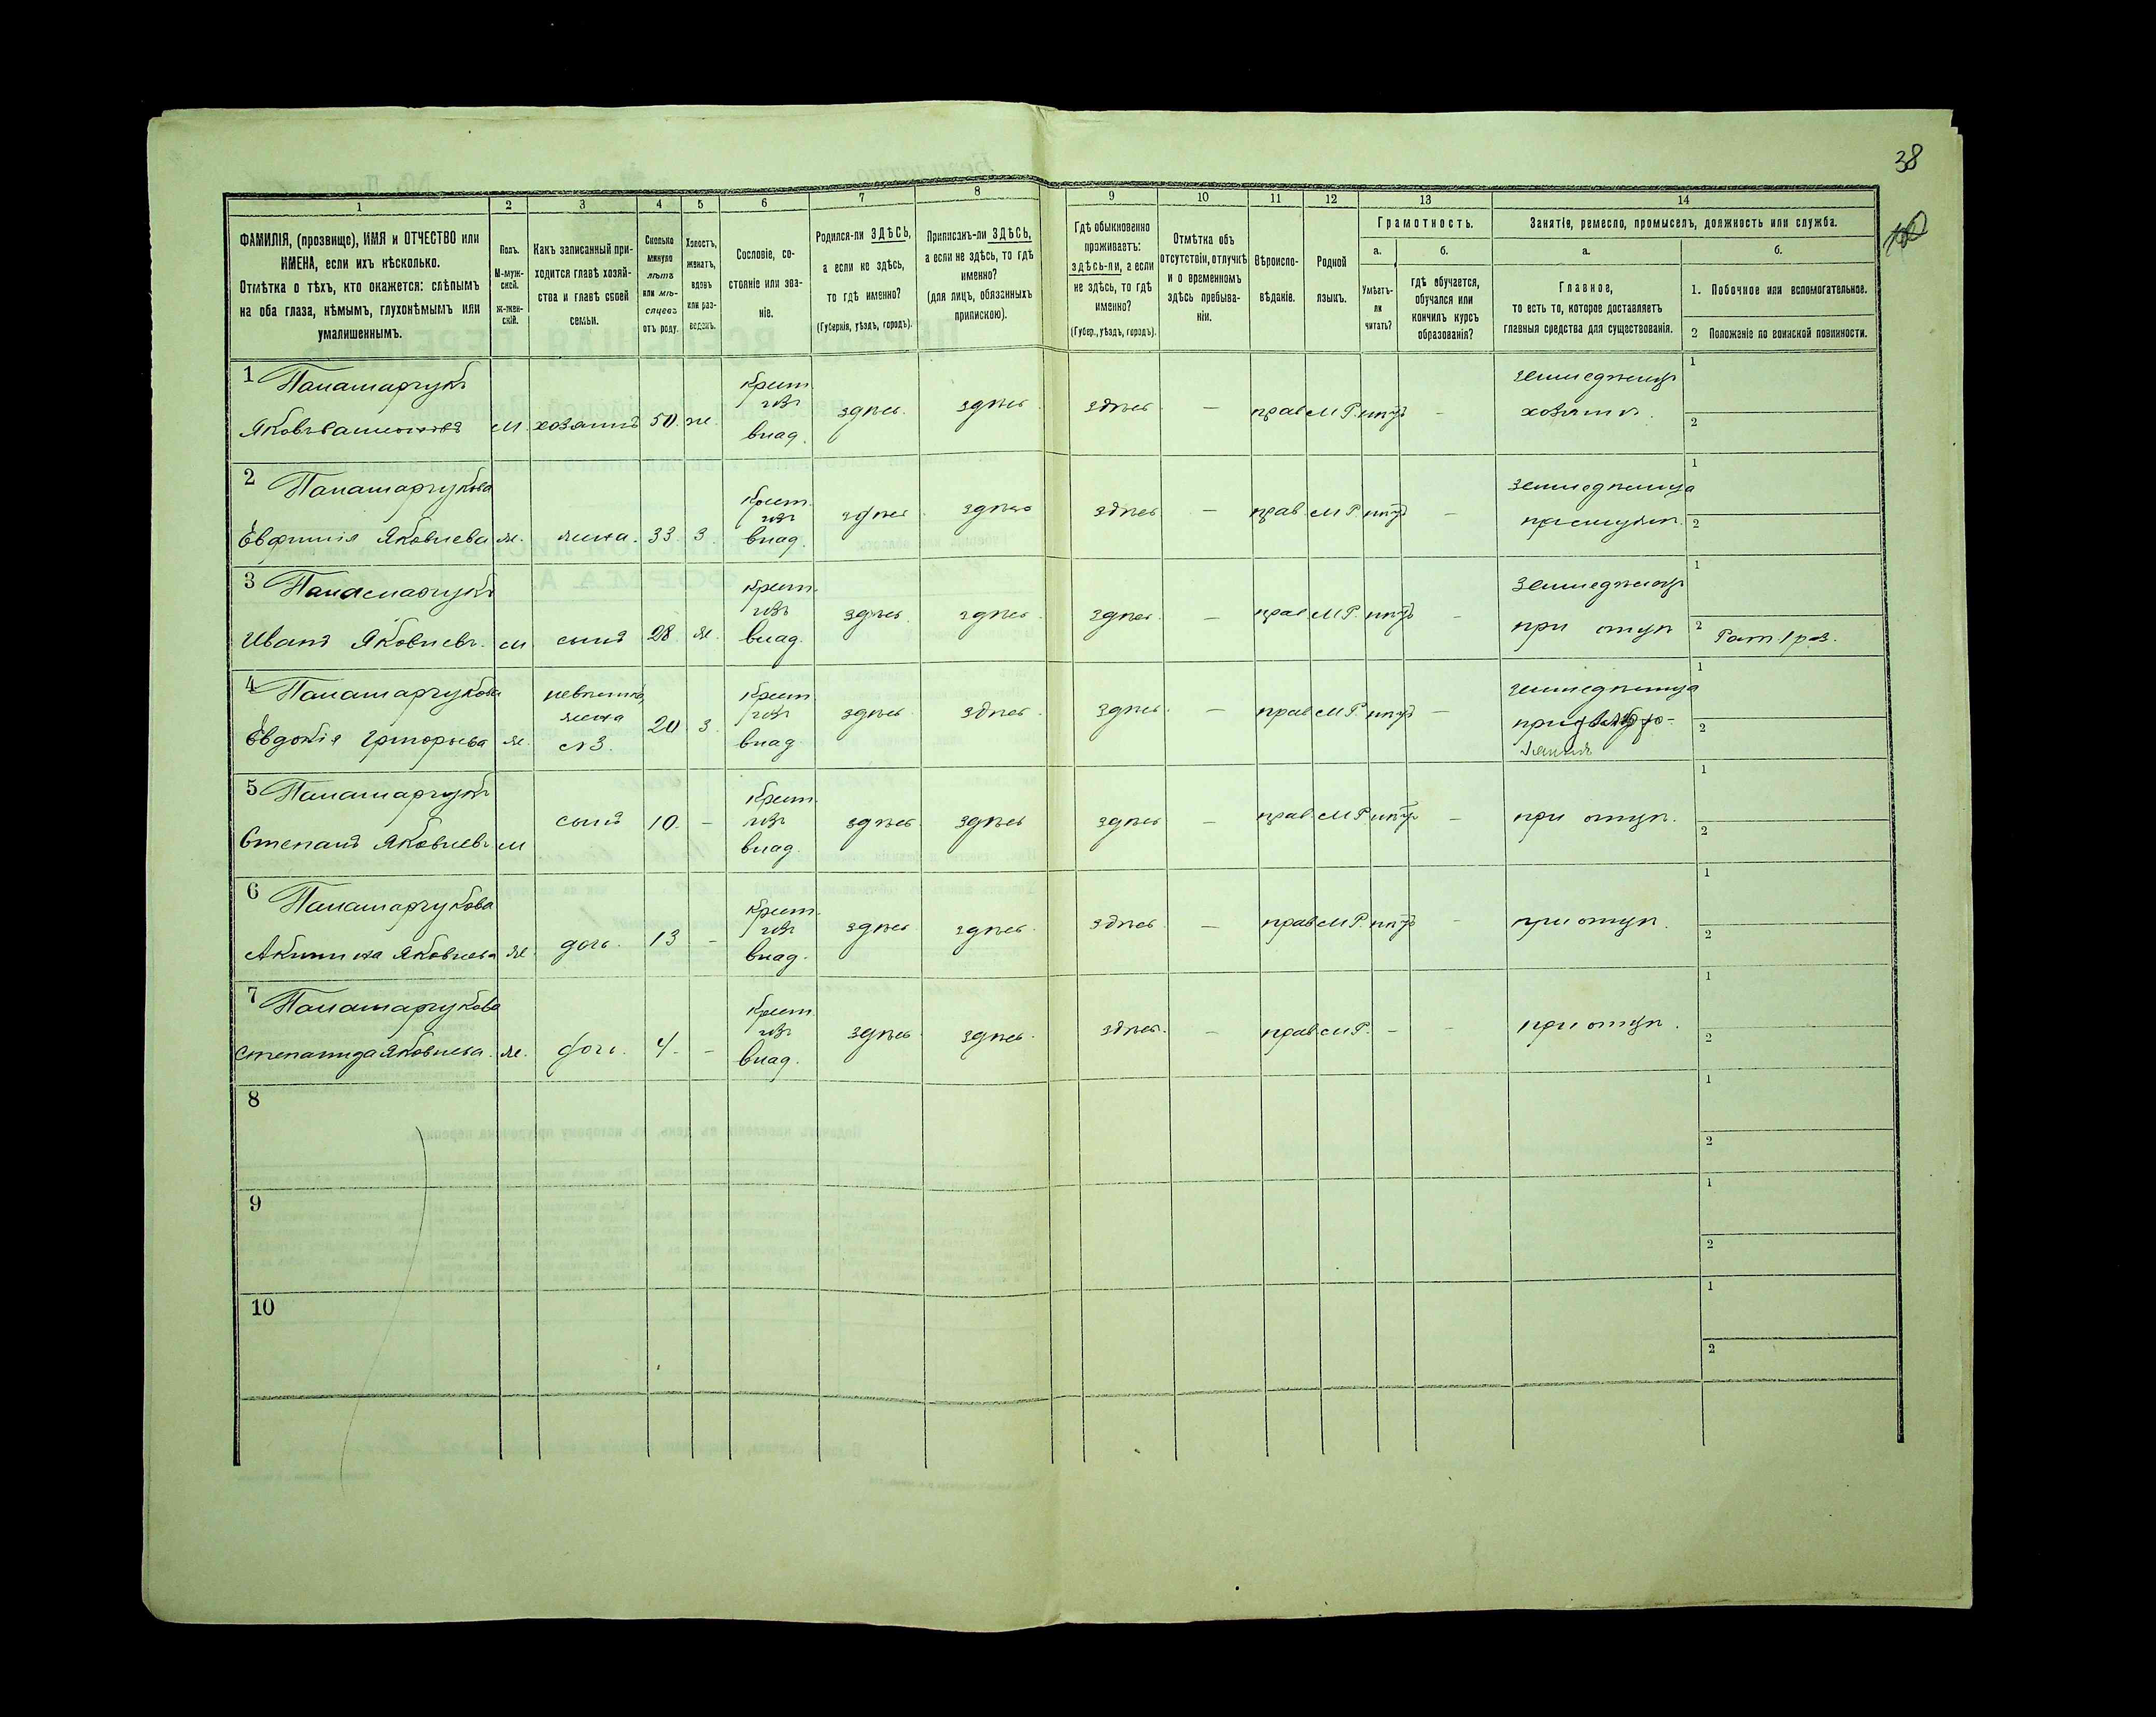 38
1
2
3
4
5
6
7
8
9
10
11
12
13
14
ФАМИЛІЯ, (прозвище), ИМЯ и ОТЧЕСТВО или
ИМЕНА, если ихъ нѣсколько.
Отмѣтка о тѣхъ, кто окажется: слѣпымъ
на оба глаза, нѣмымъ, глухонѣмымъ или
умалишеннымъ.
Полъ.
М-муж-
ской.
ж-жен-
скій.
Какъ записанный при-
ходится главѣ хозяй-
ства и главѣ своей
семьи.
Сколько
минуло
лѣтъ
или мѣ-
сяцевъ
отъ роду.
Холостъ,
женатъ,
вдовъ
или раз-
веденъ.
Сословіе, со-
стояніе или зва-
ніе.
Родился-ли ЗДѢСЬ,
а если не здѣсь,
то гдѣ именно?
(Губернія, уѣздъ, городъ).
Приписанъ-ли ЗДѢСЬ,
а если не здѣсь, то гдѣ
именно?
(для лицъ, обязанныхъ
припискою).
Гдѣ обыкновенно
проживаетъ:
здѣсь-ли, а если
не здѣсь, то гдѣ
именно?
(Губер., уѣздъ, городъ).
Отмѣтка объ
отсутствіи, отлучкѣ
и о временномъ
здѣсь пребыва-
ніи.
Вѣроиспо-
вѣданіе.
Родной
языкъ.
Грамотность.
а.
б.
Умѣетъ-
ли
читать?
гдѣ обучается,
обучался или
кончилъ курсъ
образованія?
Занятіе, ремесло, промыселъ, должность или служба.
а.
б.
Главное,
то есть то, которое доставляетъ
главныя средства для существованія.
1. Побочное или вспомогательное.
2 Положеніе по воинской повинности.
1
Яковъ
м.
хозяинъ
50.
ж.
крест.
изъ
влад.
здѣсь.
здѣсь.
здѣсь.
—
прав.
М Р.
нѣтъ
—
хозяинъ.
1
2
2
Евфимія Яковлева
ж.
жена.
33.
З.
крест.
изъ
влад.
здѣсь.
здѣсь
здѣсь
—
прав.
М Р.
нѣтъ
—
1
2
3
Иванъ Яковлевъ.
м.
сынъ
28.
ж.
крест.
изъ
влад.
здѣсь.
здѣсь.
здѣсь.
—
прав.
М Р.
нѣтъ
—
при отцѣ
1
2 Рат. 1 раз.
4
Евдокія Григорьева
ж.
невѣстка,
жена
№3.
20
З.
крест.
изъ
влад.
здѣсь.
здѣсь.
здѣсь.
—
прав.
М Р.
нѣтъ
—
1
2
5
Степанъ Яковлевъ.
м
сынъ
10.
–
крест.
изъ
влад.
здѣсь.
здѣсь
здѣсь
—
прав.
М Р.
нѣтъ
—
при отцѣ.
1
2
6
Акилина Яковлева
ж.
дочь.
13
–
крест.
изъ
влад.
здѣсь
здѣсь.
здѣсь.
—
прав.
М Р.
нѣтъ
–
при отцѣ.
1
2
7
Степанида Яковлева.
ж.
дочь.
4.
–
крест.
изъ
влад.
здѣсь.
здѣсь.
здѣсь.
—
прав.
М Р.
–
–
при отцѣ.
1
2
8
1
2
9
1
2
10
1
2